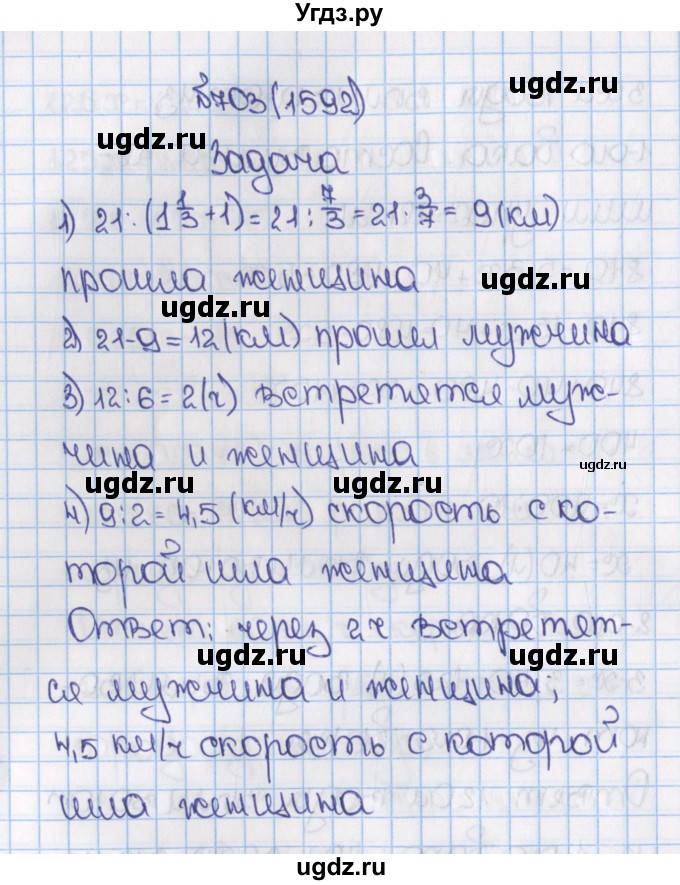 Угдз.ру
ugdz.ru
№703(1592)
ugdz.ru
Задача
1) 21:(1 1/3+1)=21:7/3=21·3/7=9(км)
прошла женщина
ugdz.ru
ugdz.ru
2) 21-9=12(км) прошел мужчина
3) 12:6=2(ч) встретятся муж-
чина и женщина
ugdz.ru
ugdz.ru
ugdz.ru
4) 9:2=4,5(км/ч) скорость с ко-
торой шла женщина
Ответ: через 2ч встретят-
ugdz.ru
ugdz.ru
ся мужчина и женщина;
4,5 км/ч скорость с которой
шла женщина
ugdz.ru